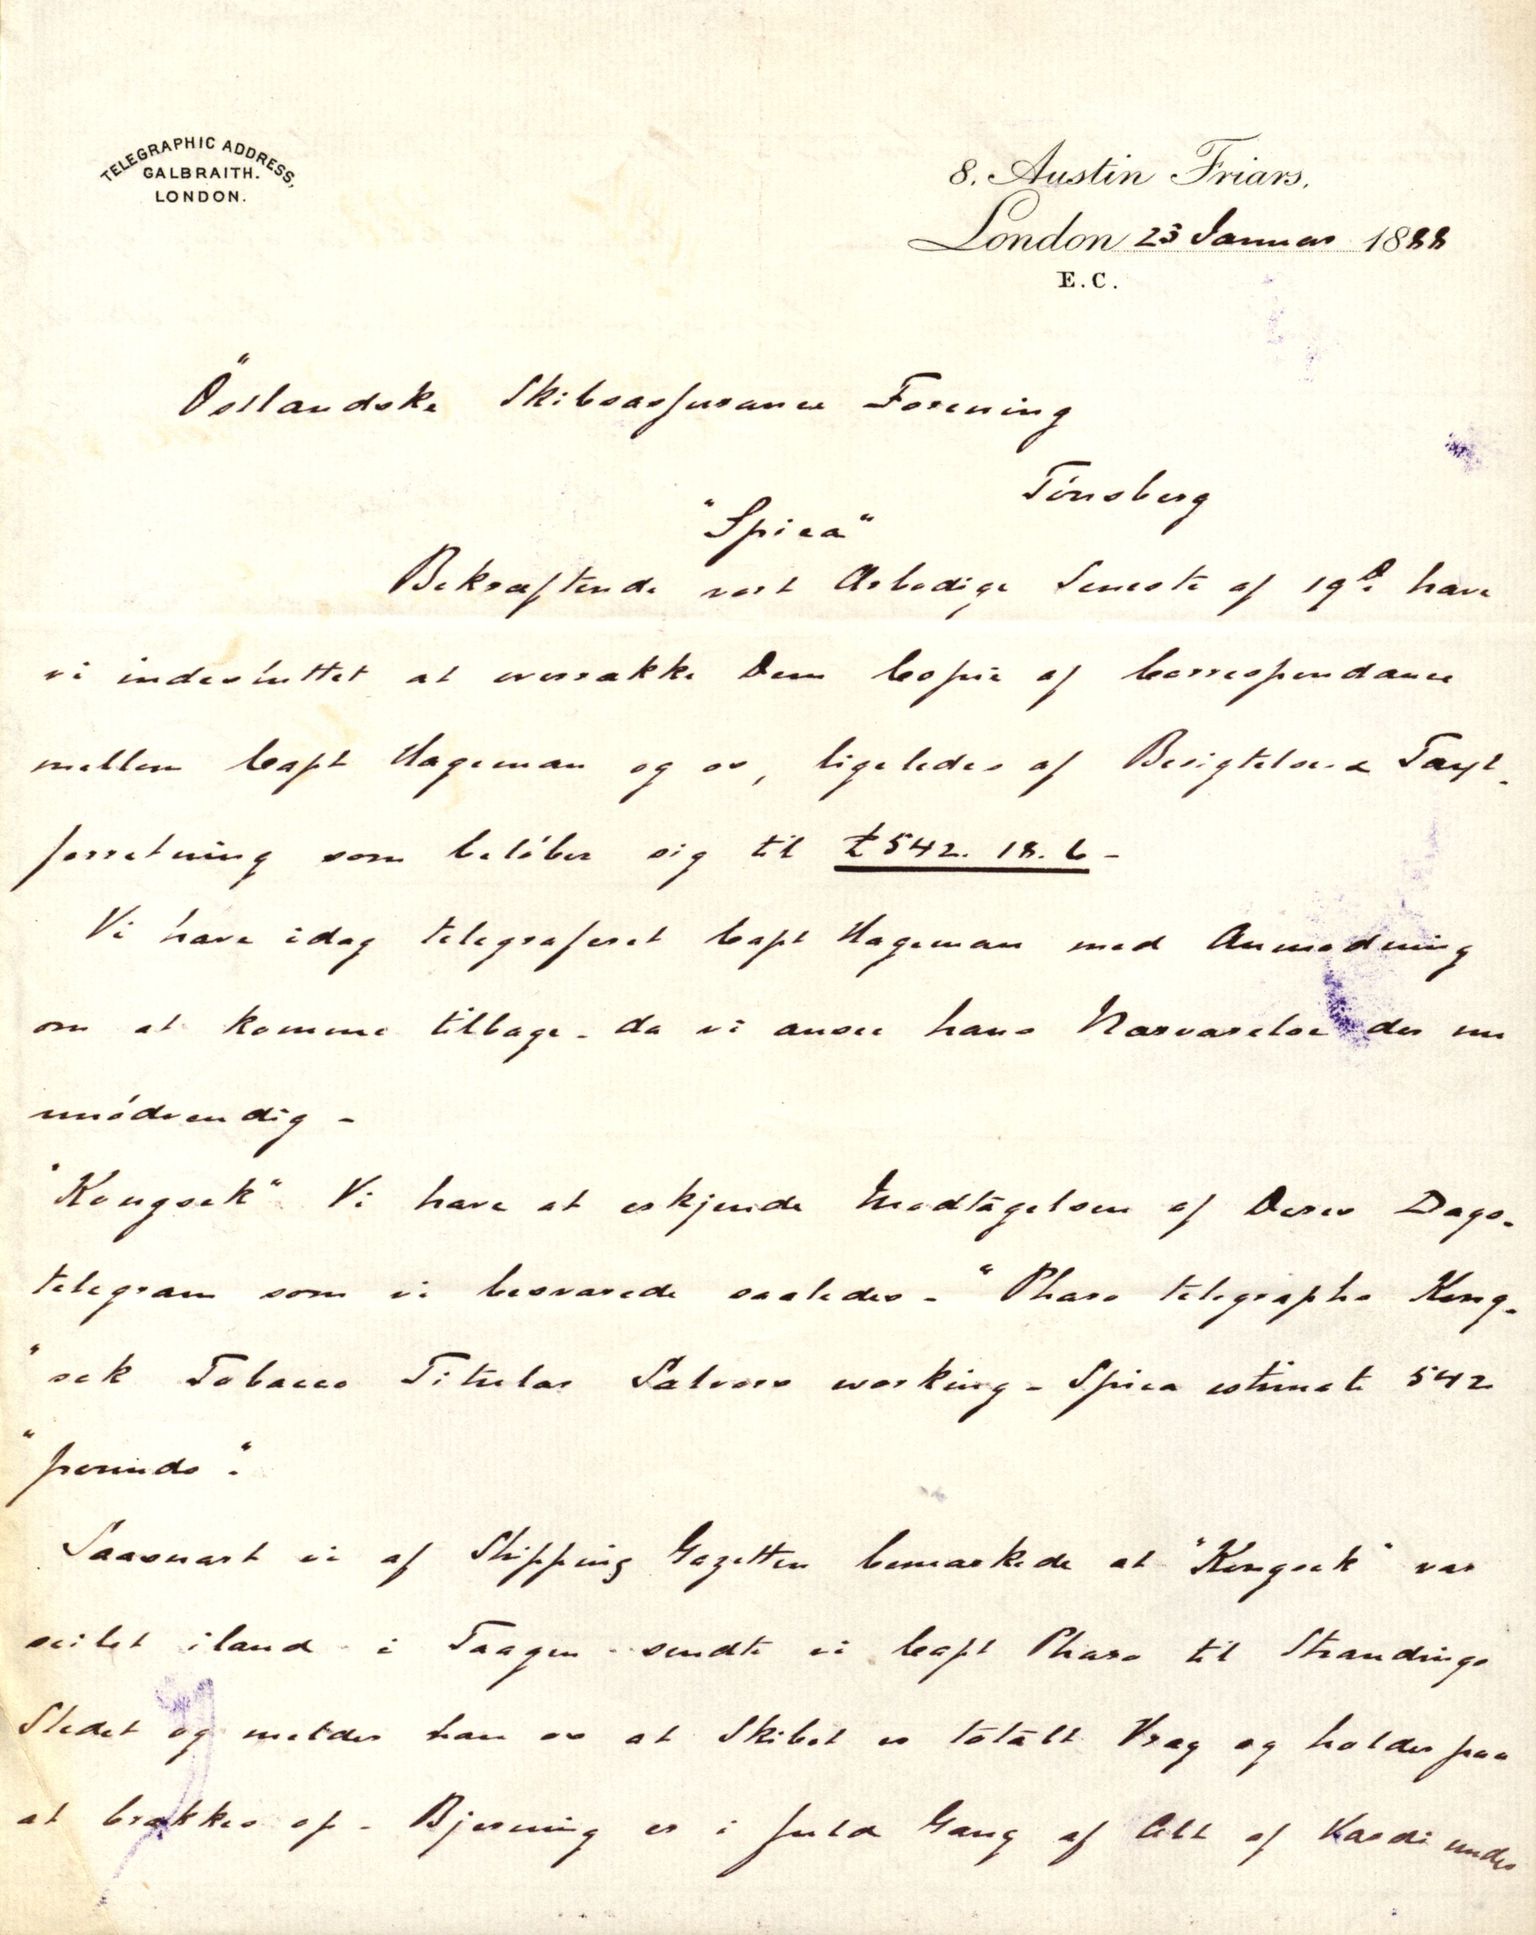 TELEGRAPHIC ADDRESS,
GALBRAITH.
LONDON.
8, Austin Friars,
London 23 Januar 1888
E.C.
Östlandske Skibsassurance Forening
Tönsberg
"Spica"
Bekræftende vort Ærbødige Seneste af 19de have
vi indesluttet at overrække Dem Copie af Correspondance
mellem Capt Hageman og os, ligeledes af Besigtelse & Taxt-
forretning som belöber sig til £542. 18. 6 -
Vi have idag telegraferet Capt Hageman med Anmodning
om at komme tilbage - da vi ansee hans Nærværelse der nu
unödvendig -
"Kongsek" Vi have at erkjende Modtagelsen af Deres Dags-
telegram som vi besvarede saaledes - "Pharo telegraphs Kong-
"sek Tobacco Titular Salvors working - Spica estimate 542
"pounds".
Saasnart vi af Shipping Gazetten bemærkede at "Kongsek" var
seilet iland i Taagen - sendte vi Capt Pharo til Strandings
Stedet og melder han os at Skibet er totalt Vrag og holder paa
at brækkes op - Bjerning er i fuld Gang af Alt af Værdi under